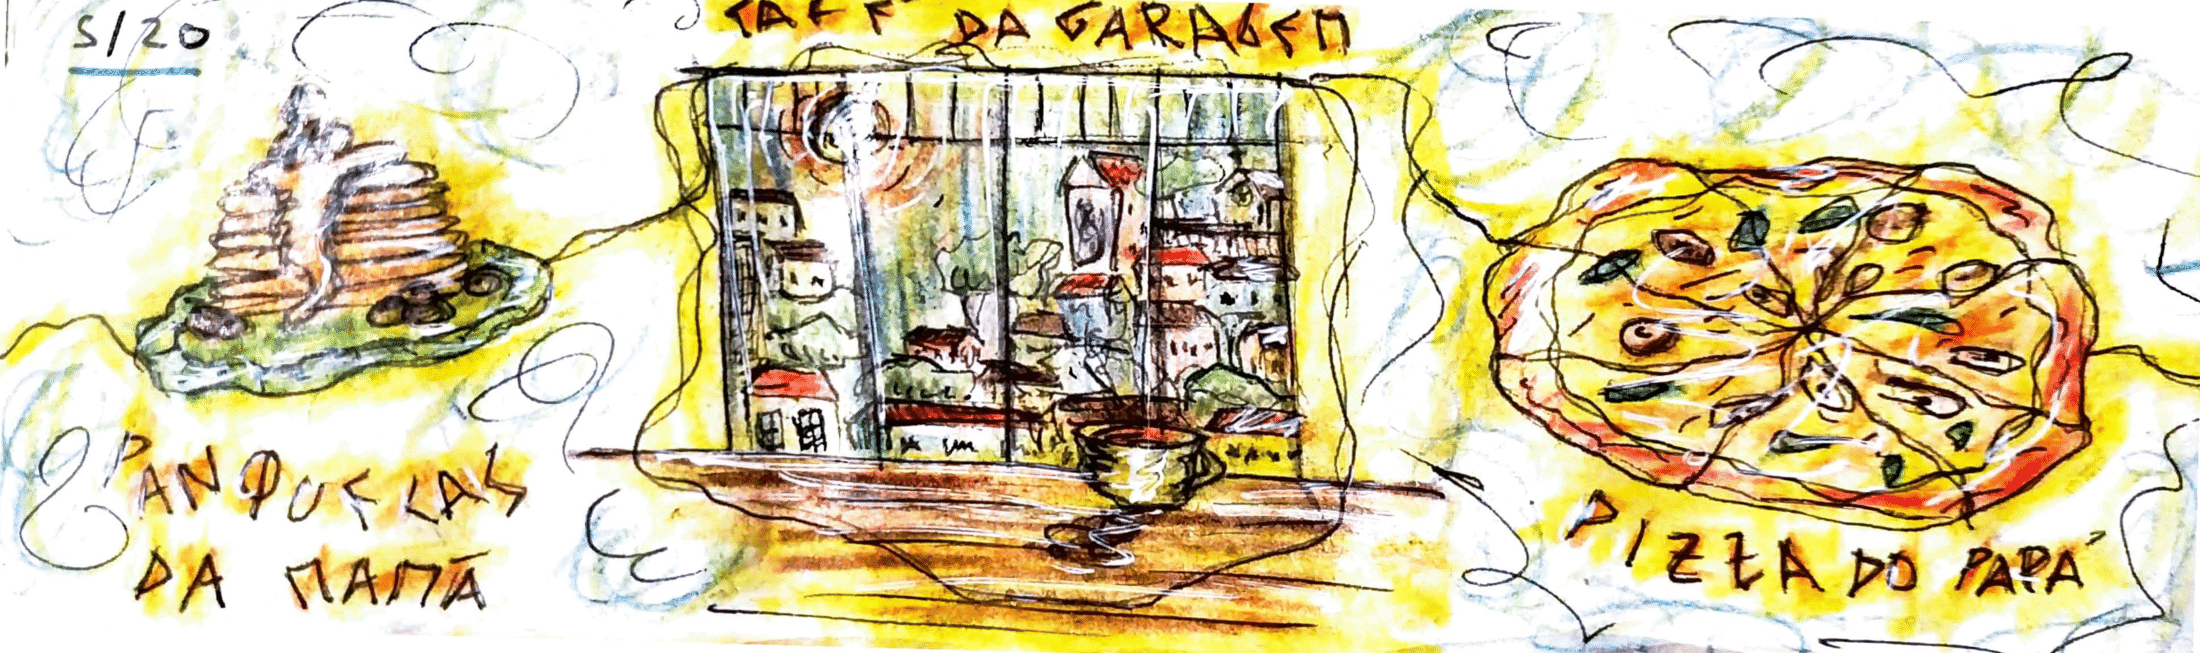 5/20
CAFÉ DA GARAGEM
PANQUECAS
DA MAMÃ
PIZZA DO PAPÁ